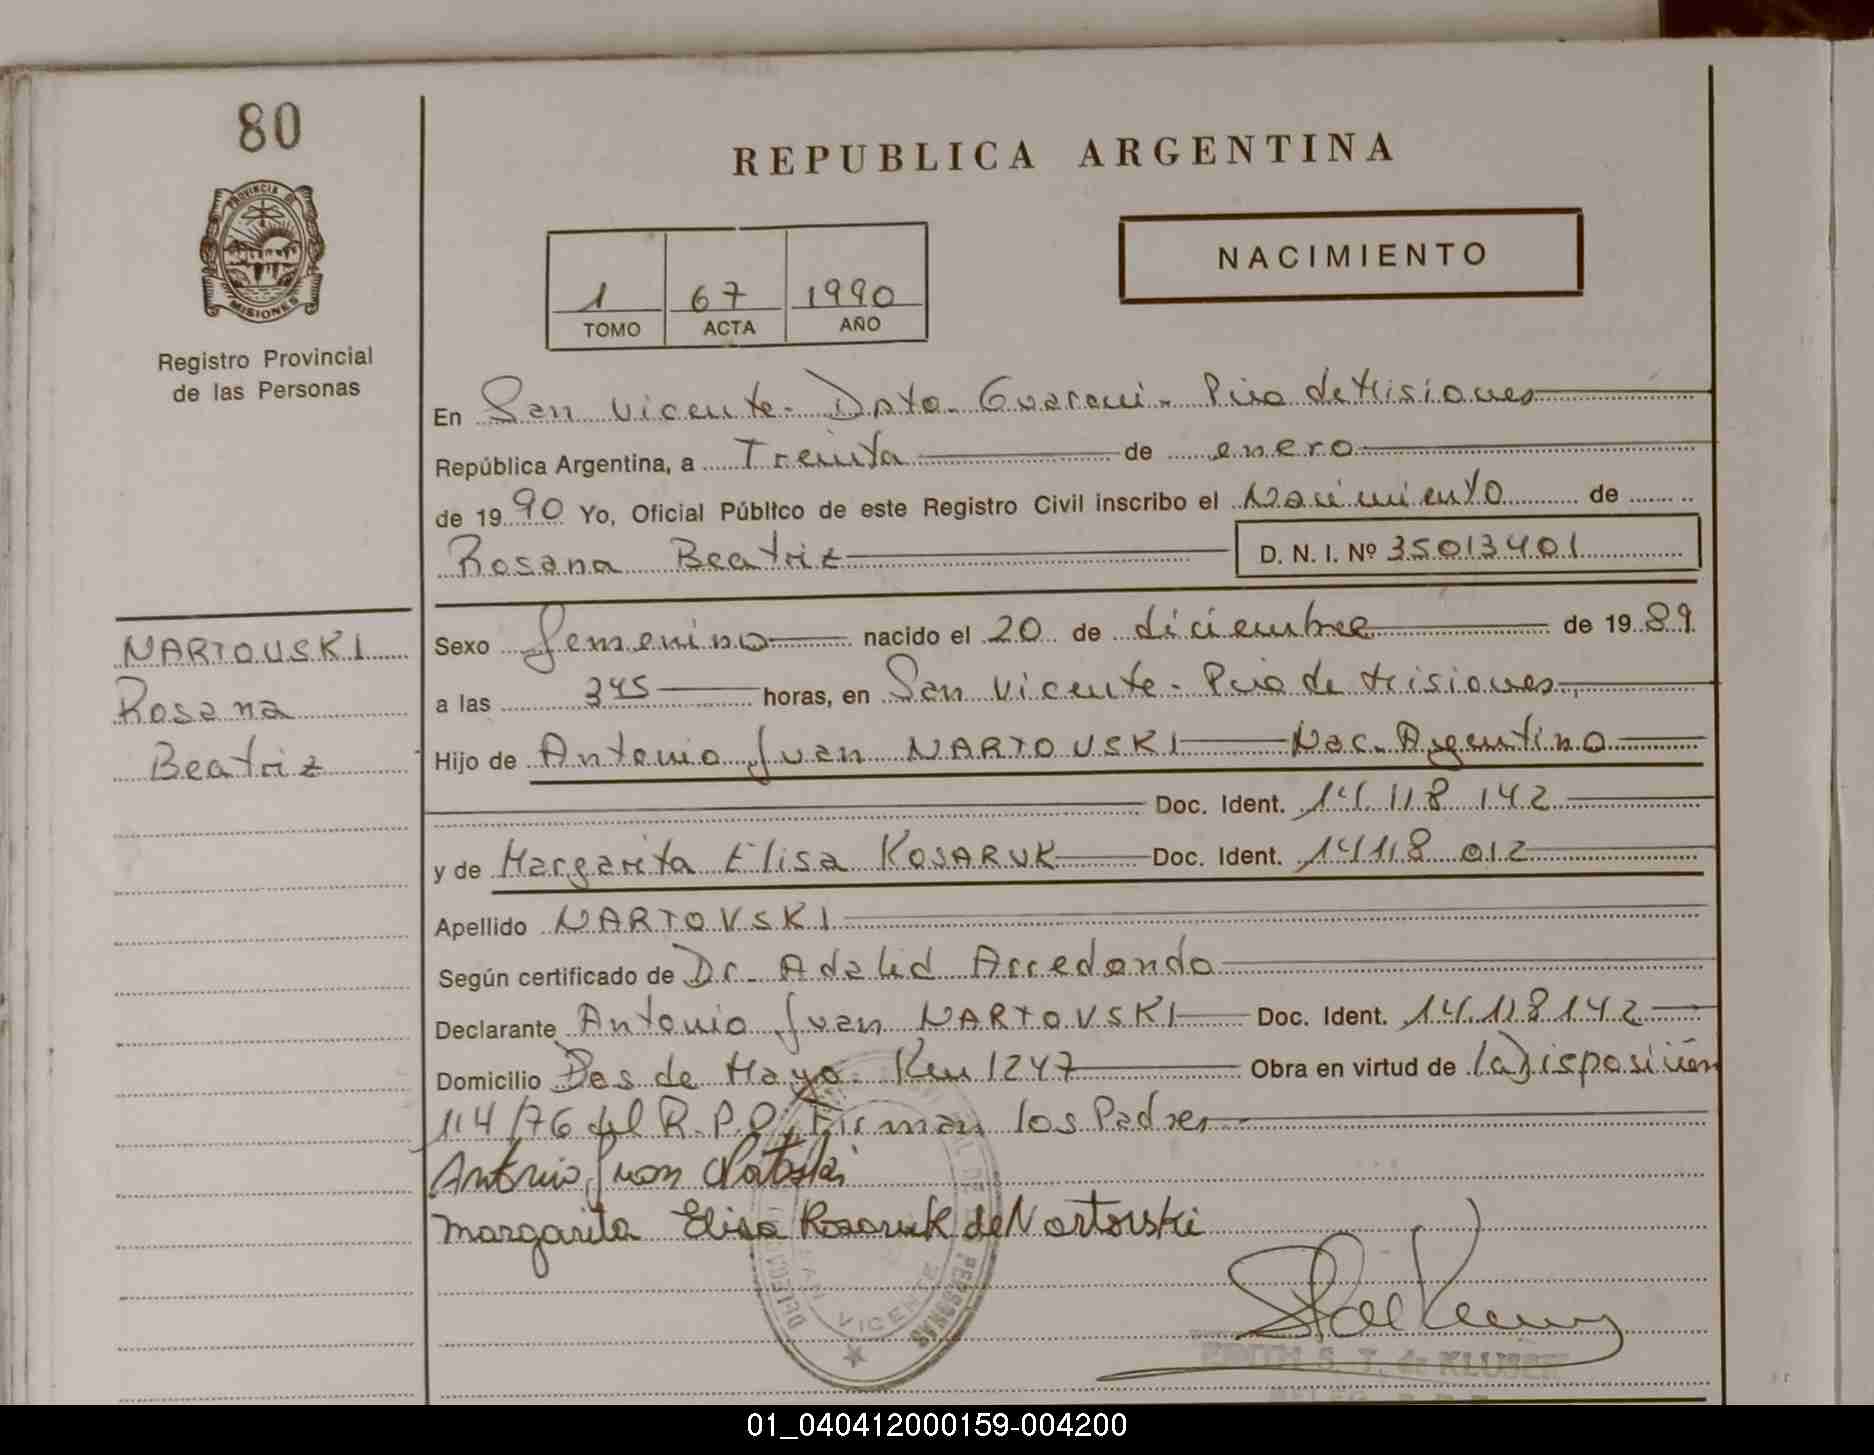 80
PROVINCIA DE
MISIONES
Registro Provincial
de las Personas
REPUBLICA ARGENTINA
1 67 1990
TOMO ACTA AÑO
NACIMIENTO
En San Vicente - Dpto. Guaraní - Pcia de Misiones
República Argentina, a Treinta de enero
de 1990 Yo, Oficial Público de este Registro Civil inscribo el Nacimiento de
Rosana Beatriz D. N. I. Nº 35013401
NARTOVSKI
Rosana
Beatriz
Sexo femenino nacido el 20 de diciembre de 1989
a las 345 horas, en San Vicente - Pcia de Misiones
Hijo de Antonio Juan NARTOVSKI Nac. Argentino
Doc. Ident. 14.118.142
y de Margarita Elisa KOSARUK Doc. Ident. 14118 012
Apellido NARTOVSKI
Según certificado de Dr. Adalid Arredondo
Declarante Antonio Juan NARTOVSKI Doc. Ident. 14.118142
Domicilio Dos de Mayo. Km 1247 Obra en virtud de la Disposición
114/76 del R.P.P. Firman los Padres
Antonio Juan
Margarita Elisa Kosaruk de Nartovski
SAN VICENTE
PERSONAS
EDITH S. T. de
01_040412000159-004200